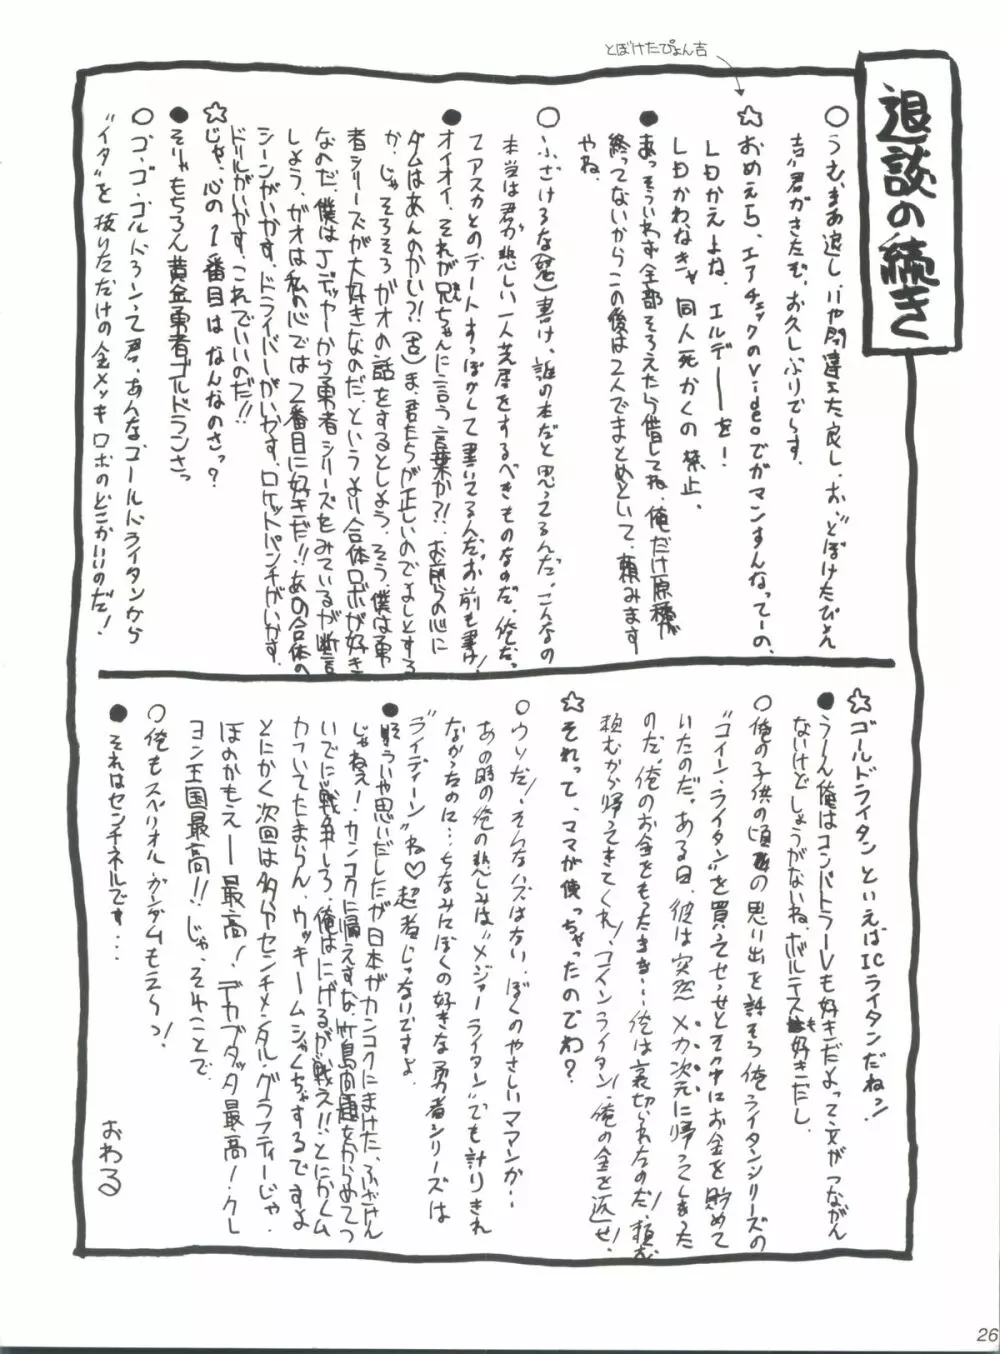 退談の続き
とぼけたぴょん吉
○うむ、まあ退し、いや間違えた、良し、お、"どぼけたぴょん
吉"君がきたむ。お久しぶりでらす。
☆おめえら、エアチェックのVideoでガマンすんなってーの、
LDかえよね、エルデーーを!
LDかわなきゃ同人死かくの禁止。
●あっそういわず全部そろえたら借してね、俺だけ原稿が
終ってないからこの後は2人でまとめといて、頼みます
やね。
○ふざけるな(怒)書け、誰の本だと思ってるんだ、こんなの
本当は君が悲しい一人芝居をするべきものなのだ。俺だっ
てアスカとのデートすっぽかして書いてるんだ。お前も書け!
●オイオイ、それが兄ちゃんに言う言葉か?!お前らの心に
ダムはあんのかい?!(古)ま、君たちが正しいのでよしとする
か、じゃ、そろそろガオの話をするとしよう、そう、僕は勇
者シリーズが大好きなのだ、というより合体ロボが好き
なのだ、僕はJデッカーから勇者シリーズをみているが断言
しよう、ガオは私の心では2番目に好きだ!!あの合体の
シーンがいかす、ドライバーがいかす、ロケットパンチがいかす、
ドリルがいかす、これでいいのだ!!
☆じゃ、心の1番目はなんなのさっ?
●そりゃもちろん黄金勇者ゴルドランさっ
○ゴ・ゴ・ゴルドランって君、あんな、ゴールドライタンから
"イタ"を抜いただけの金メッキロボのどこがいいのだ!
☆ゴールドライタンといえばICライタンだねっ!
●うーん俺はコンバトラーVも好きだよって文がつながん
ないけどしょうがないね、ボルテスも好きだし
○俺の子供の頃の思い出を話そう俺、ライタンシリーズの
"コイン・ライタン"を買ってせっせとその中にお金を貯めて
いたのだ。ある日、彼は突然メカ次元に帰ってしまった
のだ、俺のお金をもったまま…俺は裏切られたのだ!頼む
頼むから帰ってきてくれ!コインライタン!俺の金を返せ!
☆それって、ママが使っちゃったのでわ?
○ウソだ!そんなハズはない、ぼくのやさしいママンが…
あの時の俺の悲しみは"メジャーライタン"でも計りきれ
なかったのに…ちなみにぼくの好きな勇者シリーズは
"ライディーン"ね♡超者じゃないですよ
●そういや思いだしたが日本がカンコクにまけた、ふざけん
じゃねぇ!カンコクに帰えすな、竹島問題をからめてつ
いでに戦争しろ、俺はにげるが戦え!!とにかくム
カついてたまらん、ウッキームシャくちゃするですよ
とにかく次回は多分センチメンタル・グラフティーじゃ、
ほのかもえーー最高!デカブダッタ最高!クレ
ヨン王国最高!!じゃ、そゆことで、
○俺もスペリオル・ガンダムもえ〜っ!
●それはセンチネルです…
おわる
26